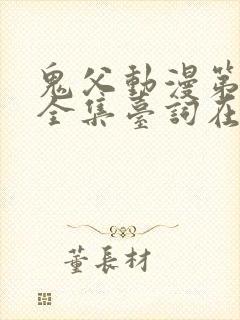 鬼父動漫第
全集臺詞在
董長材